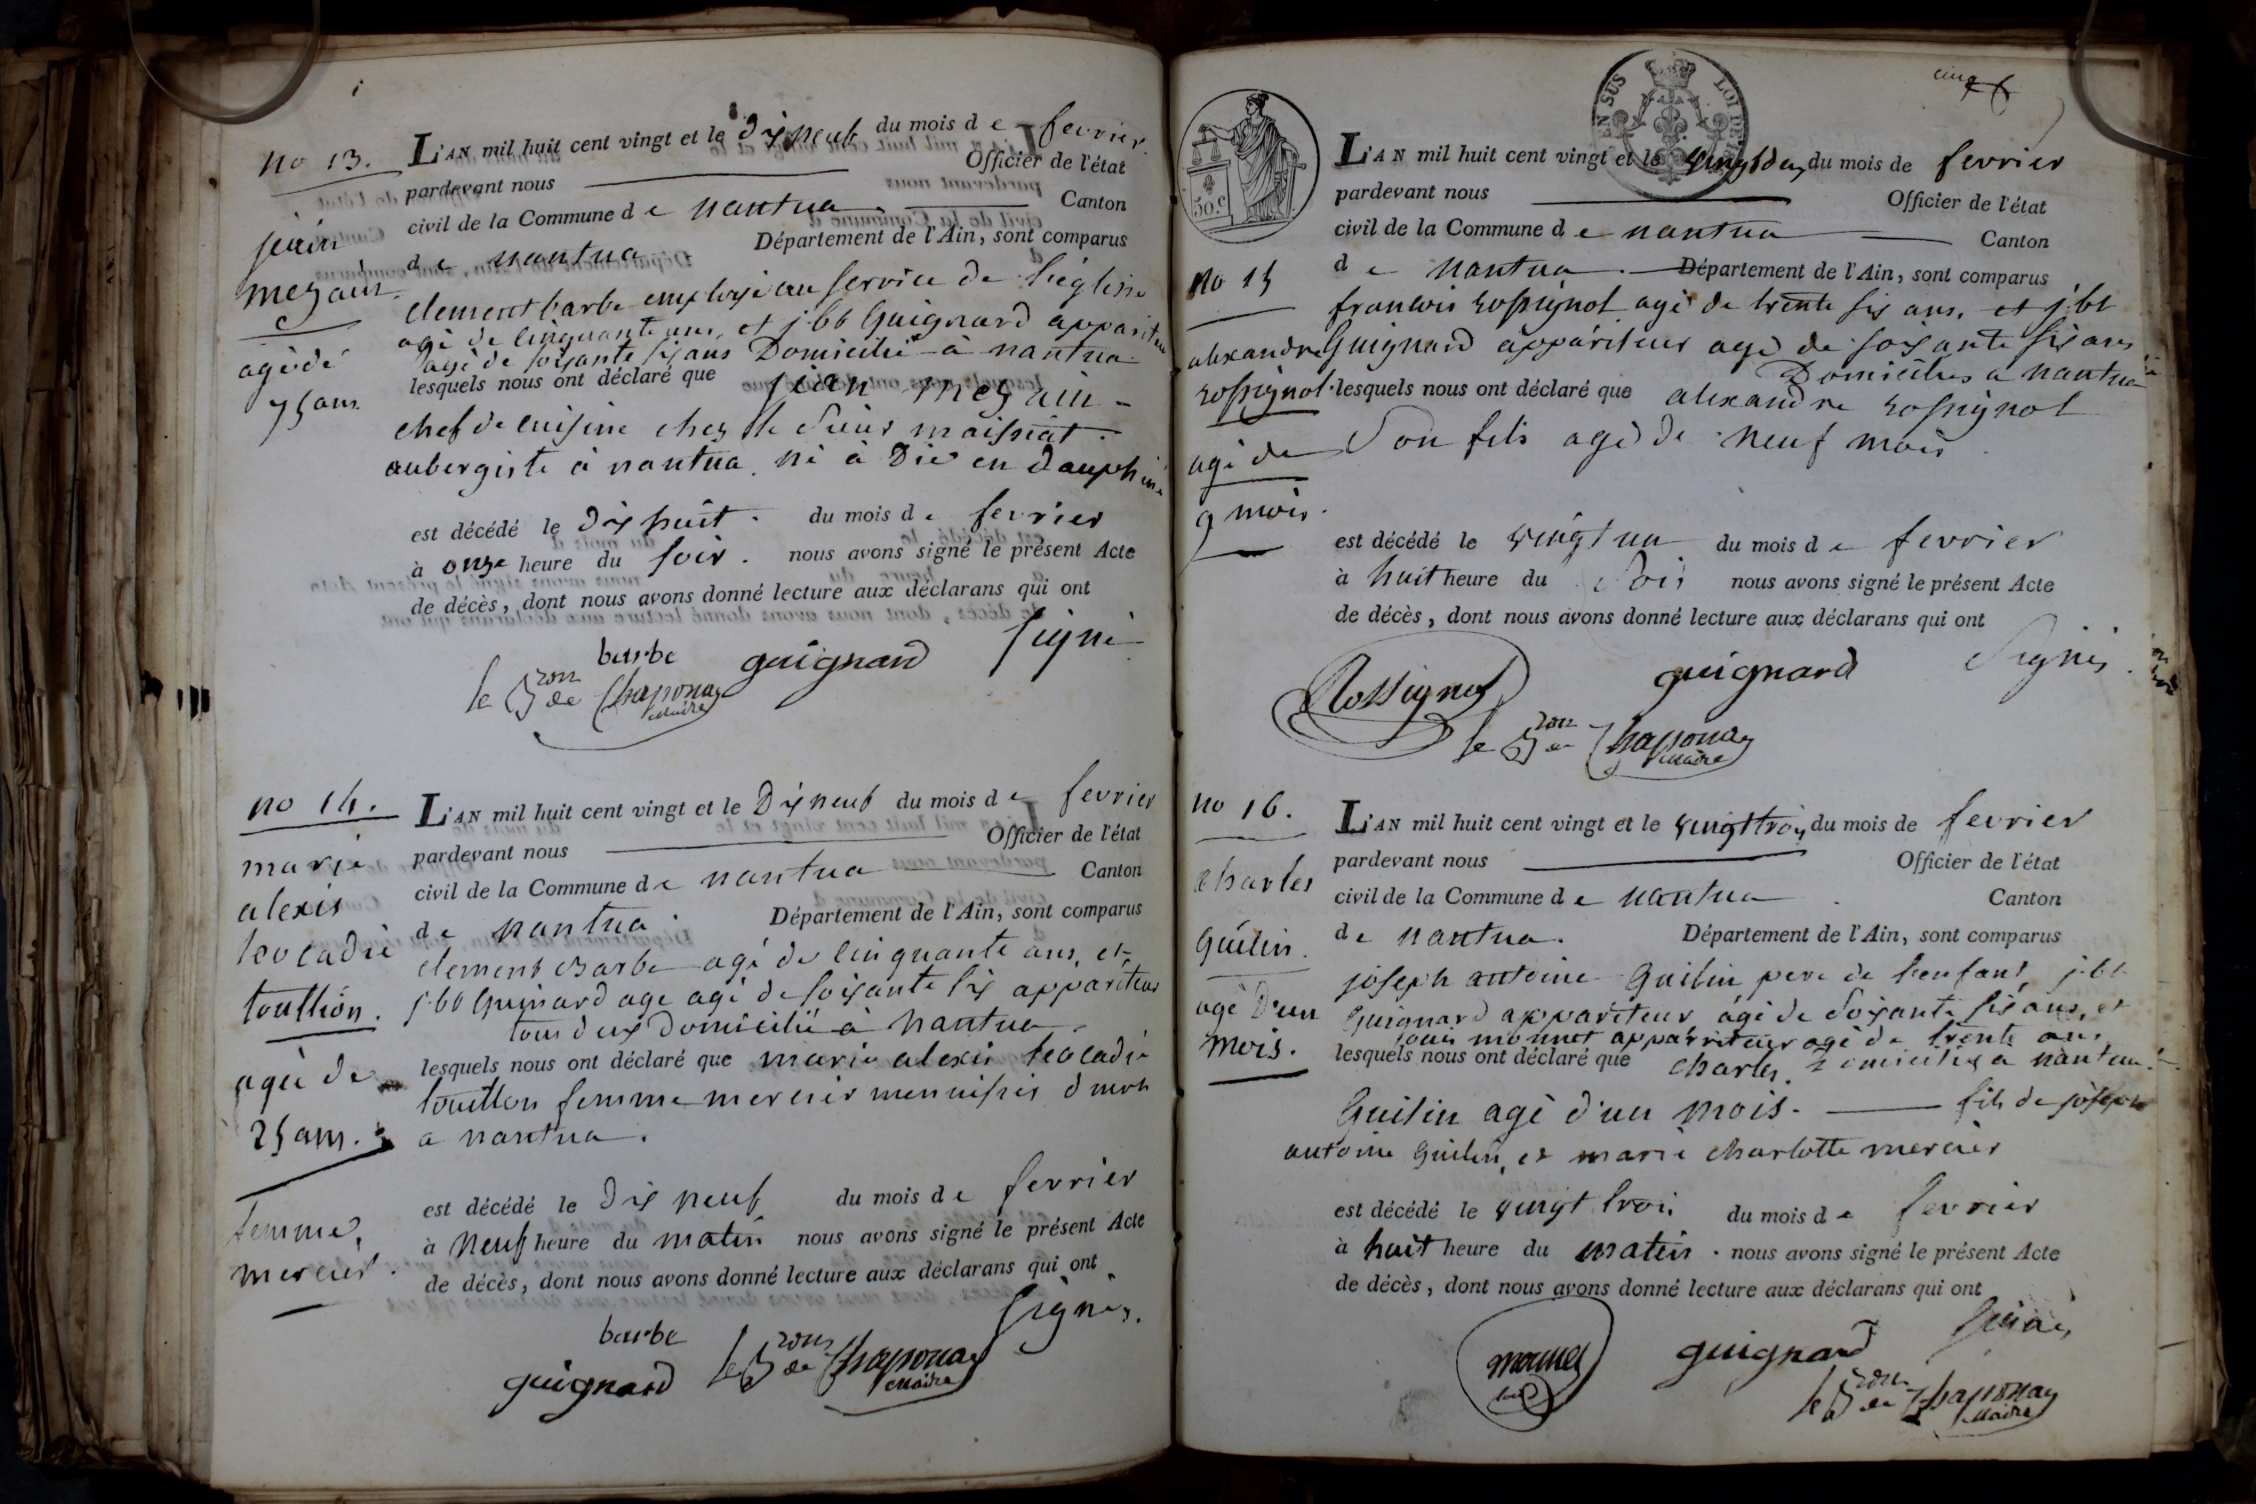 no 13.
jean
mezain.
agé de
75 ans
L'AN mil huit cent vingt et le dix neuf du mois de fevrier.
pardevant nous Officier de l'état
civil de la Commune de nantua. Canton
de nantua Département de l'Ain, sont comparus
clement barbe employé au service de l'église
agé de cinquante ans, et j.bt Guignard appariteur
agé de soixante six ans Domicilié à nantua
lesquels nous ont déclaré que jean mezain
chef de cuisine chez le sieur maissiat
aubergiste à nantua. né à Die en dauphiné
est décédé le dix huit. du mois de fevrier
à onze heure du soir. nous avons signé le présent Acte
de décès, dont nous avons donné lecture aux déclarans qui ont
signé
barbe guignard
le Bon de Chaponay
Maire
no 14.
marie
alexis
leocadie
toutlion.
agée de
25 ans.
femme
mercier.
L'AN mil huit cent vingt et le Dix neuf du mois de fevrier
pardevant nous Officier de l'état
civil de la Commune de nantua Canton
de nantua. Département de l'Ain, sont comparus
clement Barbe agé de cinquante ans, et
j.bt Guinard age agé de soixante six appariteur
tous deux Domicilié à nantua.
lesquels nous ont déclaré que marie alexis leocadie
femme mercier menuisier
a nantua.
est décédé le dix neuf du mois de fevrier
à neuf heure du matin nous avons signé le présent Acte
de décès, dont nous avons donné lecture aux déclarans qui ont
signés.
barbe
guignard le Bon de Chaponay
Maire
cinq
EN SUS LOI DE
50.c
no 15
alexandre
rossignol.
agé de
9 mois.
L'AN mil huit cent vingt et le vingt deux du mois de fevrier
pardevant nous Officier de l'état
civil de la Commune de nantua Canton
de nantua. Département de l'Ain, sont comparus
francois rossignol agé de trente six ans, et j.bt
Guignard appariteur agé de soixante six ans
Domiciliés a nantua
lesquels nous ont déclaré que alexandre rossignol
son fils agé de neuf mois
est décédé le vingt un du mois de fevrier
à huit heure du soir nous avons signé le présent Acte
de décès, dont nous avons donné lecture aux déclarans qui ont
signés.
Rossignol guignard
le Bon de Chaponay
Maire
no 16.
charles
Guilin.
agé D'un
mois.
L'AN mil huit cent vingt et le vingt trois du mois de fevrier
pardevant nous Officier de l'état
civil de la Commune de nantua. Canton
de nantua. Département de l'Ain, sont comparus
joseph antoine Guilin pere de l'enfant j.bt
Guignard appariteur agé de soixante six ans, et
louis monnet apparriteur agé de trente ans
lesquels nous ont déclaré que charles domiciliés a nantua
Guilin agé d'un mois. fils de joseph
antoine Guilin, et marie charlotte mercier
est décédé le vingt trois du mois de fevrier
à huit heure du matin. nous avons signé le présent Acte
de décès, dont nous avons donné lecture aux déclarans qui ont
signés
monnet guignard
le Bon de Chaponay
Maire